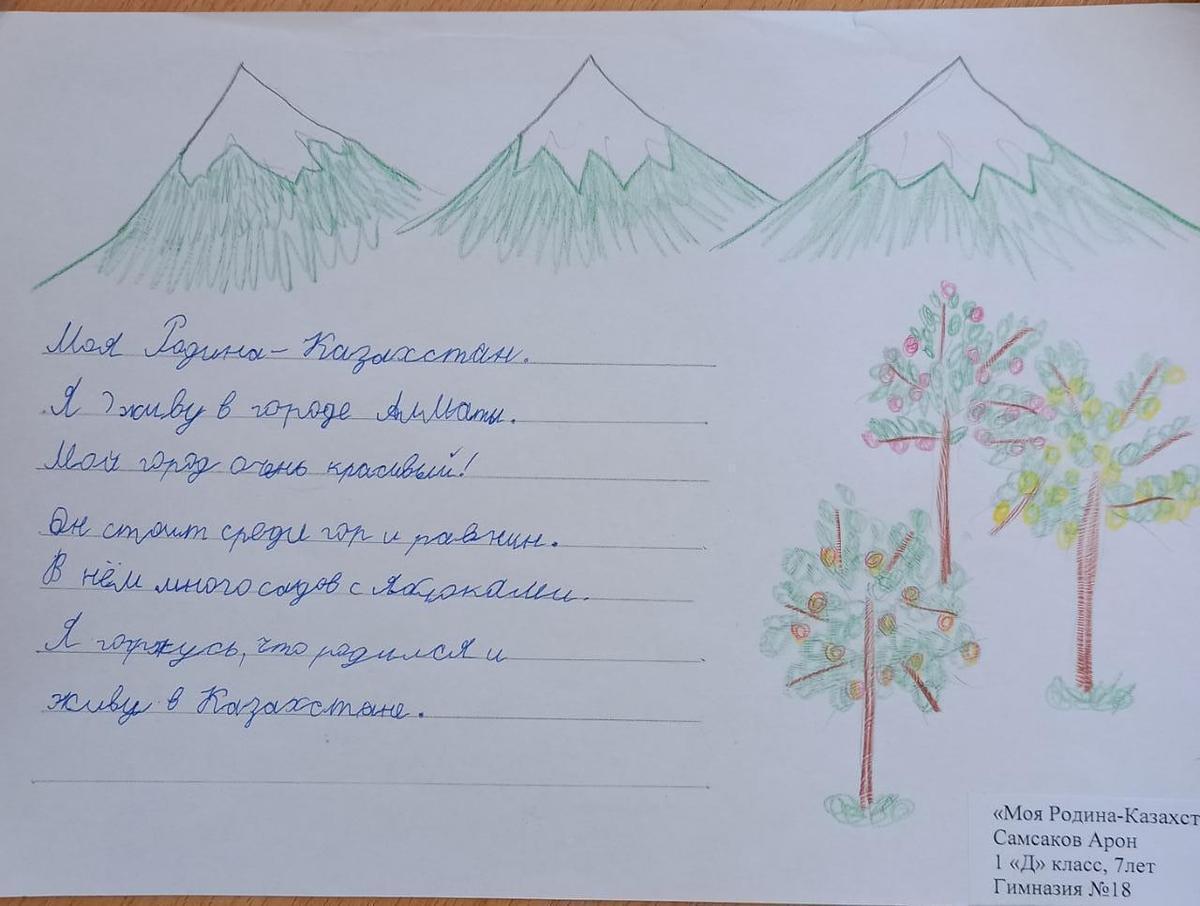 Моя Родина - Казахстан.
Я живу в городе АлМаты.
Мой город очень красивый!
Он стоит среди гор и равнин.
В нём много садов с яблоками.
Я горжусь, что родился и
живу в Казахстане.
«Моя Родина-Казахст
Самсаков Арон
1 «Д» класс, 7лет
Гимназия №18